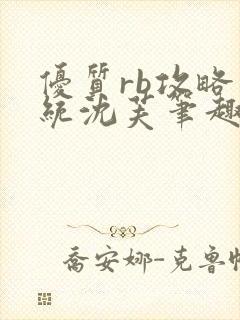 優質rb攻略
統沈芙筆趣
喬安娜-克魯